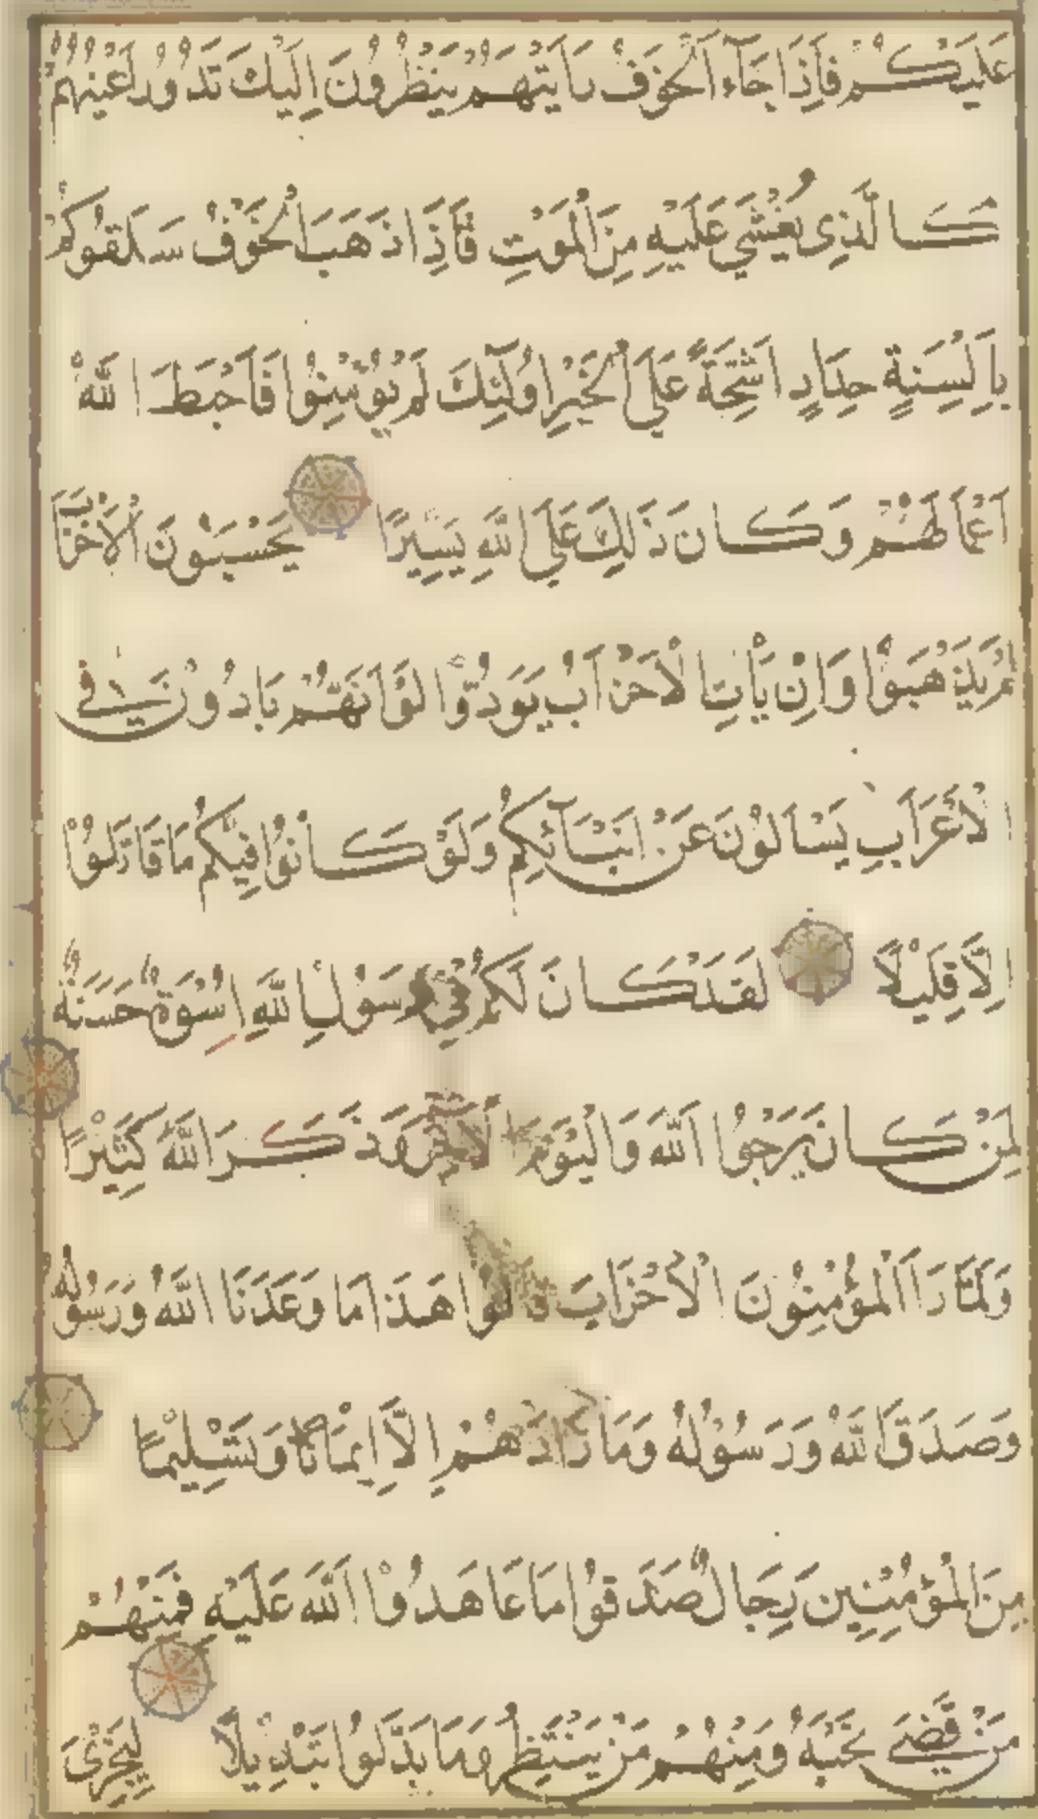 عَلَيْكُمْ فَاِذَا جَآءَ الْخَوْفُ رَاَيْتَهُمْ يَنْظُرُونَ اِلَيْكَ تَدُورُ اَعْيُنُهُمْ
كَالَّذِى يُغْشَى عَلَيْهِ مِنَ الْمَوْتِ فَاِذَا ذَهَبَ الْخَوْفُ سَلَقُوكُمْ
بِاَلْسِنَةٍ حِدَادٍ اَشِحَّةً عَلَى الْخَيْرِ اُولَئِكَ لَمْ يُؤْمِنُوا فَاَحْبَطَ اللهُ
اَعْمَالَهُمْ وَكَانَ ذَلِكَ عَلَى اللهِ يَسِيرًا يَحْسَبُونَ الْاَحْزَابَ
لَمْ يَذْهَبُوا وَاِنْ يَأْتِ الْاَحْزَابُ يَوَدُّوا لَوْ اَنَّهُمْ بَادُونَ فِى
الْاَعْرَابِ يَسْاَلُونَ عَنْ اَنْبَآئِكُمْ وَلَوْ كَانُوا فِيكُمْ مَا قَاتَلُوا
اِلَّا قَلِيلًا لَقَدْ كَانَ لَكُمْ فِى رَسُولِ اللهِ اُسْوَةٌ حَسَنَةٌ
لِمَنْ كَانَ يَرْجُوا اللهَ وَالْيَوْمَ الْاٰخِرَ وَذَكَرَ اللهَ كَثِيرًا
وَلَمَّا رَاَ الْمُؤْمِنُونَ الْاَحْزَابَ قَالُوا هَذَا مَا وَعَدَنَا اللهُ وَرَسُولُهُ
وَصَدَقَ اللهُ وَرَسُولُهُ وَمَا زَادَهُمْ اِلَّا اِيمَانًا وَتَسْلِيمًا
مِنَ الْمُؤْمِنِينَ رِجَالٌ صَدَقُوا مَا عَاهَدُوا اللهَ عَلَيْهِ فَمِنْهُمْ
مَنْ قَضَى نَحْبَهُ وَمِنْهُمْ مَنْ يَنْتَظِرُ وَمَا بَدَّلُوا تَبْدِيلًا لِيَجْزِىَ